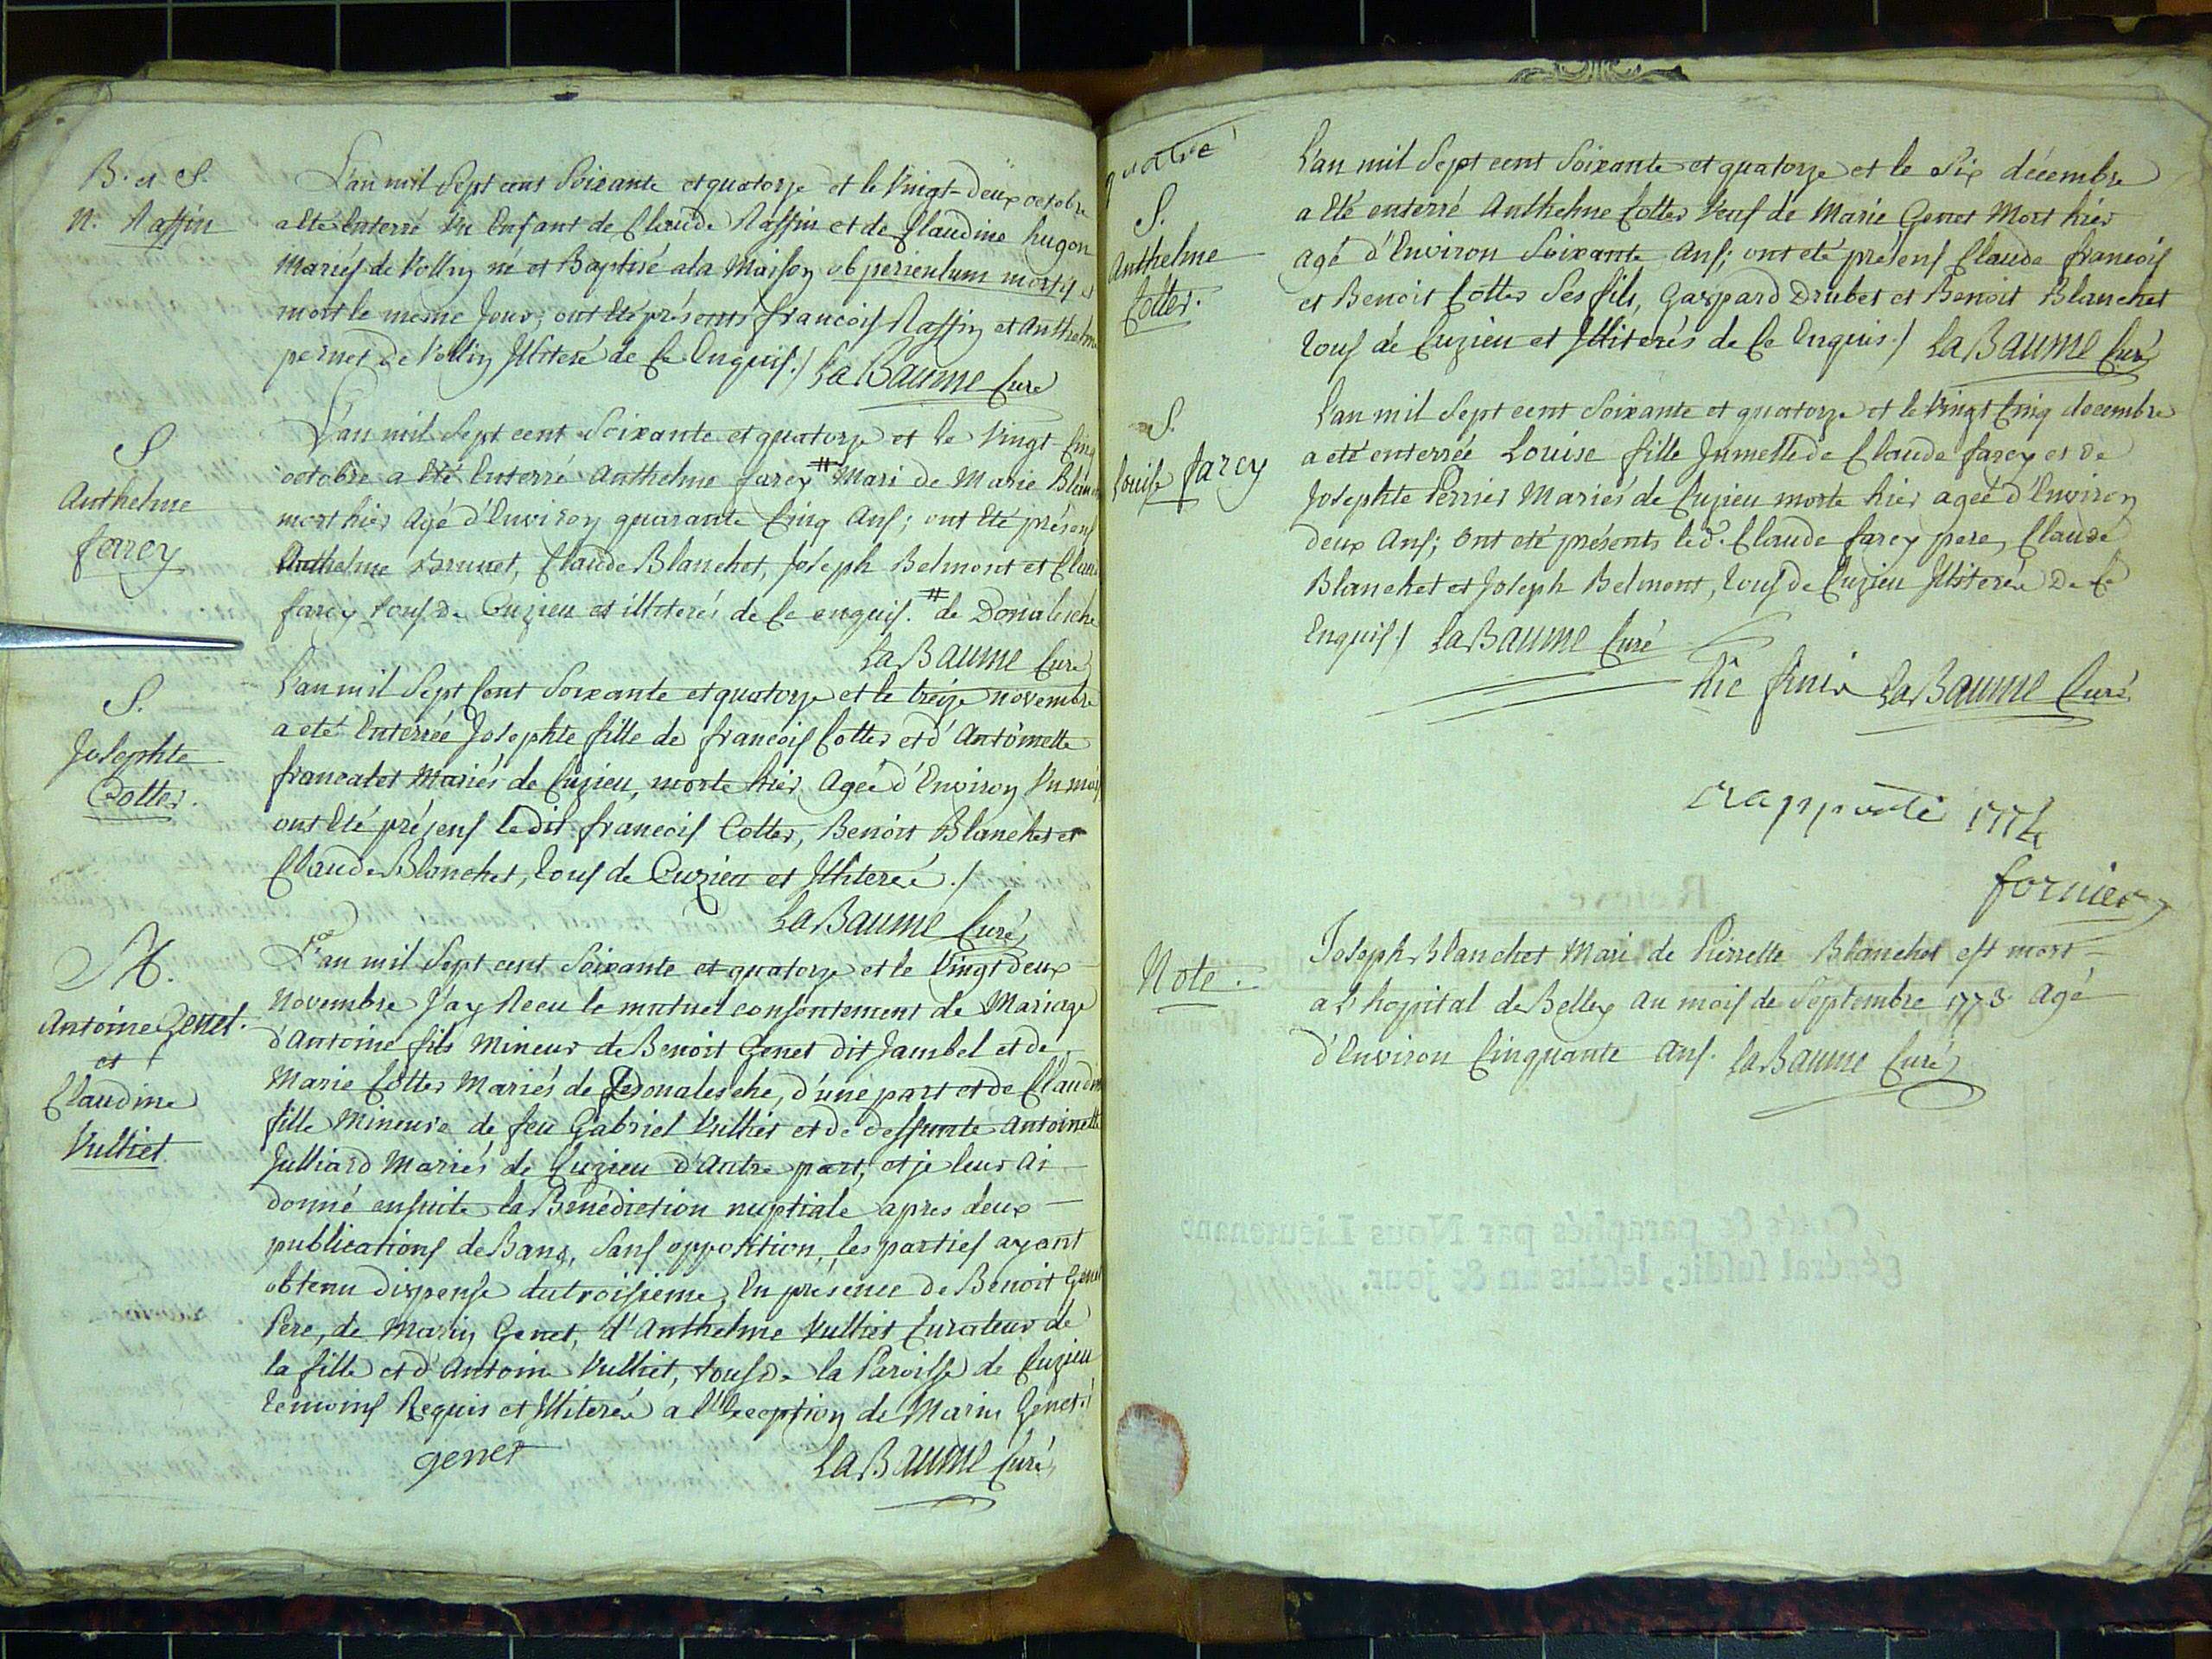 B. et S.
N. Raffin
L'an mil Sept cent Soixante et quatorze et le Vingt-deux octobre
a eté Enterré Un Enfant de Claude Raffin et de Claudine hugon
Mariés de Vollin né et Baptisé a la Maison ob periculum mortis et
mort le même Jour; ont Eté présents francois Raffin et Anthelme
pernet de Vollin Illiteré de Ce Enquis./ La Baume Curé
S
Anthelme
farcy
L'an mil Sept cent Soixante et quatorze et le Vingt-Cinq
octobre a Eté Enterré Anthelme farcy # Mari de Marie
mort hier Agé d'Environ quarante Cinq Ans; ont Eté présens
Anthelme Brunet, Claude Blanchet, Joseph Belmont et Claude
farcy tous de Cuzieu et illiterés de Ce enquis. # de Donalesche
La Baume Curé
S.
Josephte
Cotter.
L'an mil Sept Cent Soixante et quatorze et le treize novembre
a eté Enterrée Josephte fille de francois Cotter et d'Antoinette
francalet Mariés de Cuzieu, morte hier Ageé d'Environ Un mois
ont Eté présens Ledit francois Cotter, Benoit Blanchet et
Claude Blanchet, tous de Cuzieu et Illiteré./
La Baume Curé
M.
Antoine Genet.
et
Claudine
Vulliet.
L'an mil Sept cent Soixante et quatorze et le Vingt deux
Novembre J'ay Recu le mutuel consentement de Mariage
d'Antoine fils Mineur de Benoit Genet dit Jambel et de
Marie Cotter Mariés de Donalesche, d'une part et de Claudine
fille Mineure de feu Gabriel Vulliet et de deffunte Antoinette
Julliard Mariés de Cuzieu d'Autre part, et je leur ai
donné ensuite la Bénédiction nuptiale apres deux
publications de Bans, Sans opposition, les parties ayant
obtenu dispense du troisieme, En présence de Benoit Genet
Pere, de Marin Genet, d'Anthelme Vulliet Curateur de
la fille et d'Antoine Vulliet, tous de la Paroisse de Cuzieu
temoins Requis et Illiteré a l'Exception de Marin Genet./
genet La Baume Curé
quatre
S.
Anthelme
Cotter.
L'an mil Sept cent Soixante et quatorze et le Six décembre
a Eté enterré Anthelme Cotter Veuf de Marie Genet Mort hier
agé d'Environ Soixante Ans; ont eté présens Claude francois
et Benoit Cotter Ses fils, Gaspard Drubet et Benoit Blanchet
tous de Cuzieu et Illiterés de Ce Enquis./ La Baume Curé
S.
Louise farcy
L'an mil Sept cent Soixante et quatorze et le Vingt Cinq decembre
a eté enterrée Louise fille Jumelle de Claude farcy et de
Josephte Perrier Mariés de Cuzieu morte hier ageé d'Environ
deux Ans; Ont eté présents led. Claude farcy pere, Claude
Blanchet et Joseph Belmont, tous de Cuzieu Illiteré De Ce
Enquis./ La Baume Curé
hic finis La Baume Curé
rapporté 1774
fornier
Note.
Joseph Blanchet Mari de Pierrette Blanchet est mort
a l'hopital de Belley au mois de Septembre 1773 Agé
d'Environ Cinquante Ans. La Baume Curé